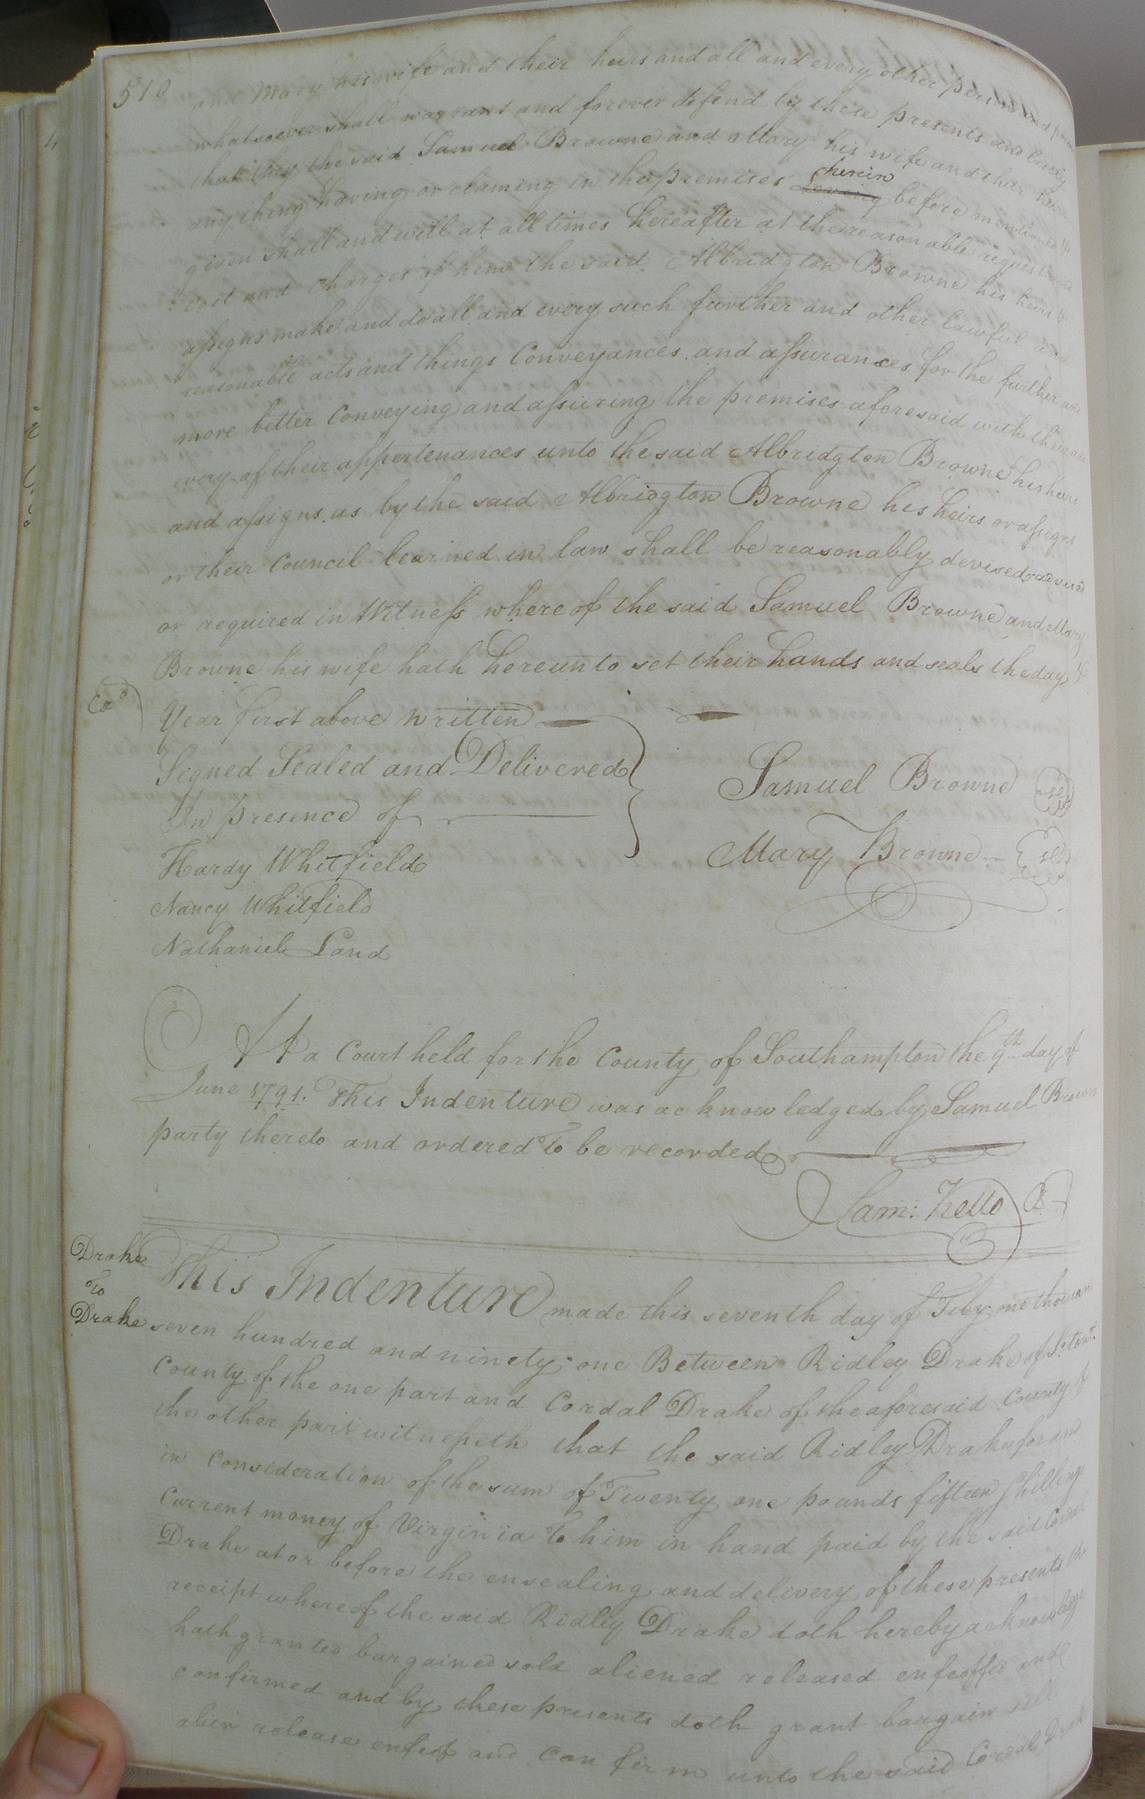 510
and Mary his wife and their heirs and all and every other person
whatsoever shall warrant and forever defend by these presents and lastly
that they the said Samuel Browne and Mary his wife and their heirs
any thing having or claiming in the premises herein before mentioned
given shall and will at all times hereafter at the reasonable request and
cost and charges of him the said Albridgton Browne his heirs &
assigns make and do all and every such further and other lawful and
reasonable acts and things Conveyances and assurances for the further and
more better Conveying and assuring the premises aforesaid with their and
every of their appertenances unto the said Albridgton Browne his heirs
and assigns as by the said Albridgton Browne his heirs or assigns
or their Council learned in law shall be reasonably devised advised
or required in Witness whereof the said Samuel Browne and Mary
Browne his wife hath hereunto set their hands and seals the day &
Exd
Year first above written
Signed Sealed and Delivered
In presence of
Samuel Browne
Mary Browne
Hardy Whitfield
Nancy Whitfield
Nathaniel Land
At a Court held for the County of Southampton the 9th day of
June 1791. This Indenture was acknowledged by Samuel Browne
party thereto and ordered To be recorded
Sam: Kello
Drake
To
Drake
This Indenture made this seventh day of Feby one thousand
seven hundred and ninety one Between Ridley Drake of
County of the one part and Cordal Drake of the aforesaid County of
the other part witnesseth that the said Ridley Drake for and
in Consideration of the sum of Twenty one pounds fifteen Shilling
Current money of Virginia To him in hand paid by the said Cordal
Drake at or before the ensealing and delivery of these presents the
receipt whereof the said Ridley Drake doth hereby acknowledge
hath granted bargained sold aliened released enfeoffed and
confirmed and by these presents doth grant bargain sell
alien release enfeof and confirm unto the said Cordal Drake